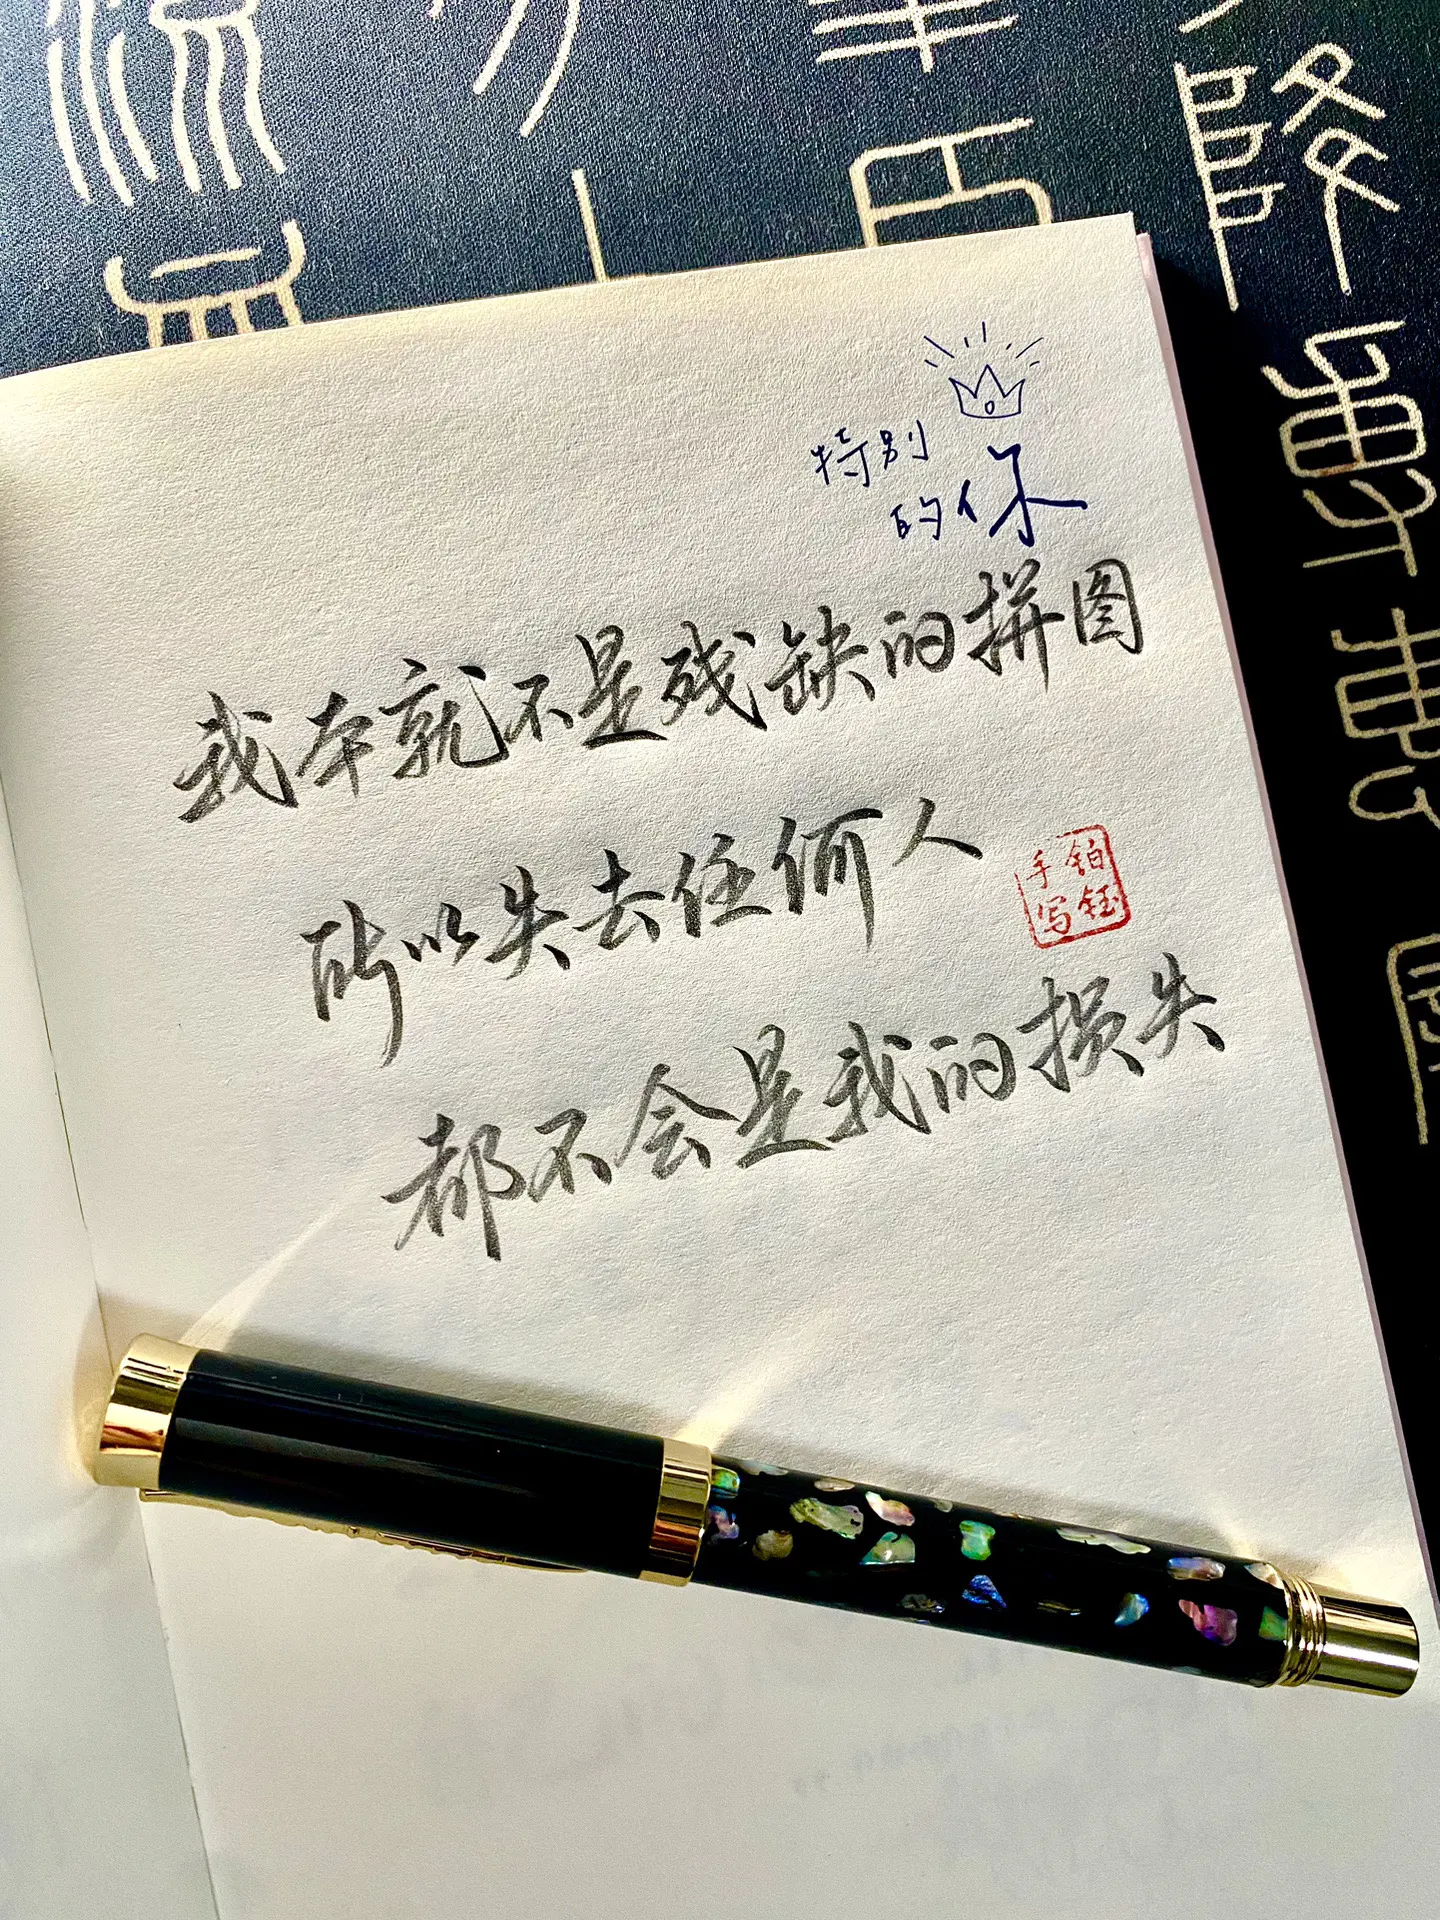 特别
的你
我本就不是残缺的拼图
所以失去任何人
铂钰
手写
都不会是我的损失